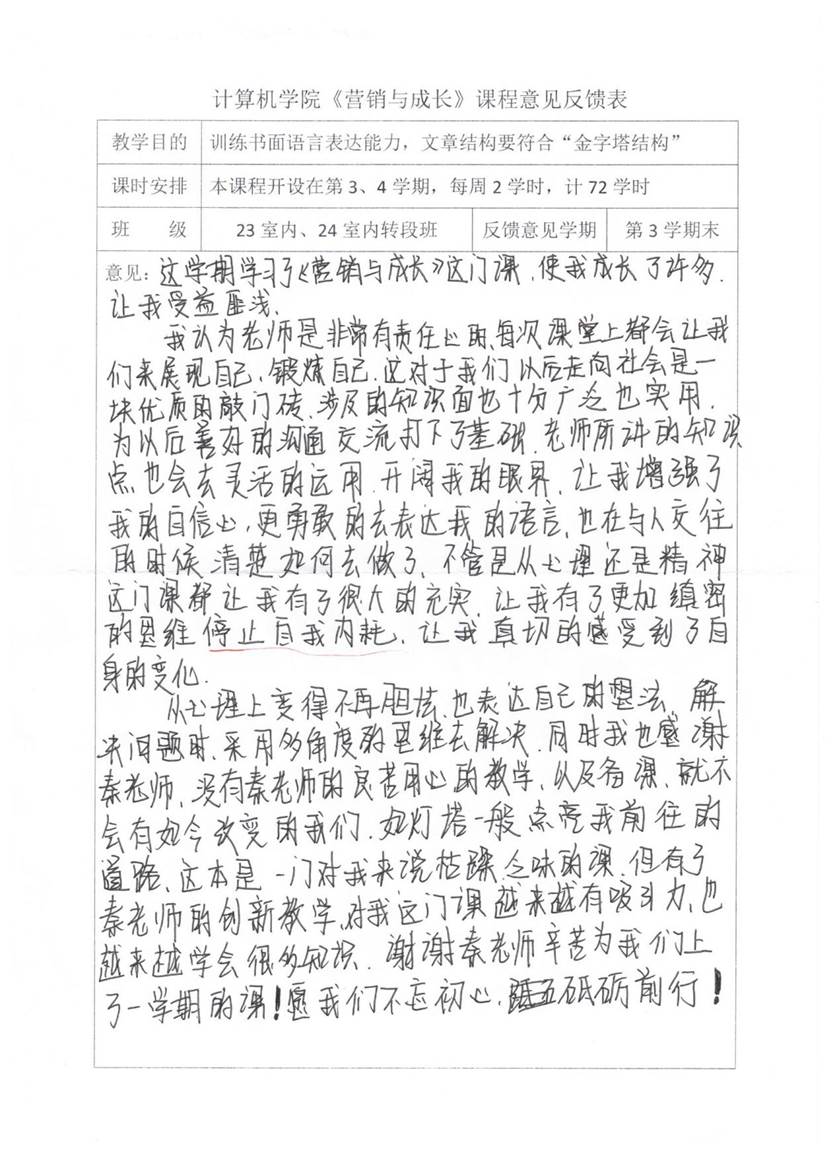 计算机学院《营销与成长》课程意见反馈表
教学目的 训练书面语言表达能力，文章结构要符合“金字塔结构”
课时安排 本课程开设在第 3、4 学期，每周 2 学时，计 72 学时
班 级 23 室内、24 室内转段班 反馈意见学期 第 3 学期末
意见：这学期学习了《营销与成长》这门课，使我成长了许多，
让我受益匪浅。
我认为老师是非常有责任心的，每次课堂上都会让我
们来展现自己，锻炼自己，这对于我们以后走向社会是一
块优质的敲门砖，涉及的知识面也十分广泛也实用，
为以后善好的沟通交流打下了基础，老师所讲的知识
点也会去灵活的运用，开阔我的眼界，让我增强了
我的自信心，更勇敢的去表达我的语言，也在与人交往
的时候清楚如何去做了，不管是从心理还是精神
这门课都让我有了很大的充实，让我有了更加缜密
的思维停止自我内耗，让我真切的感受到了自
身的变化。
从心理上变得不再胆怯，也表达自己的想法，解
决问题时，采用多角度的思维去解决，同时我也感谢
秦老师，没有秦老师的良苦用心的教学，以及备课，就不
会有如今改变的我们，如灯塔一般点亮我前往的
道路，这本是一门对我来说枯躁乏味的课，但有了
秦老师的创新教学，对我这门课越来越有吸引力，也
越来越学会很多知识，谢谢秦老师辛苦为我们上
了一学期的课！愿我们不忘初心，砥砺前行！